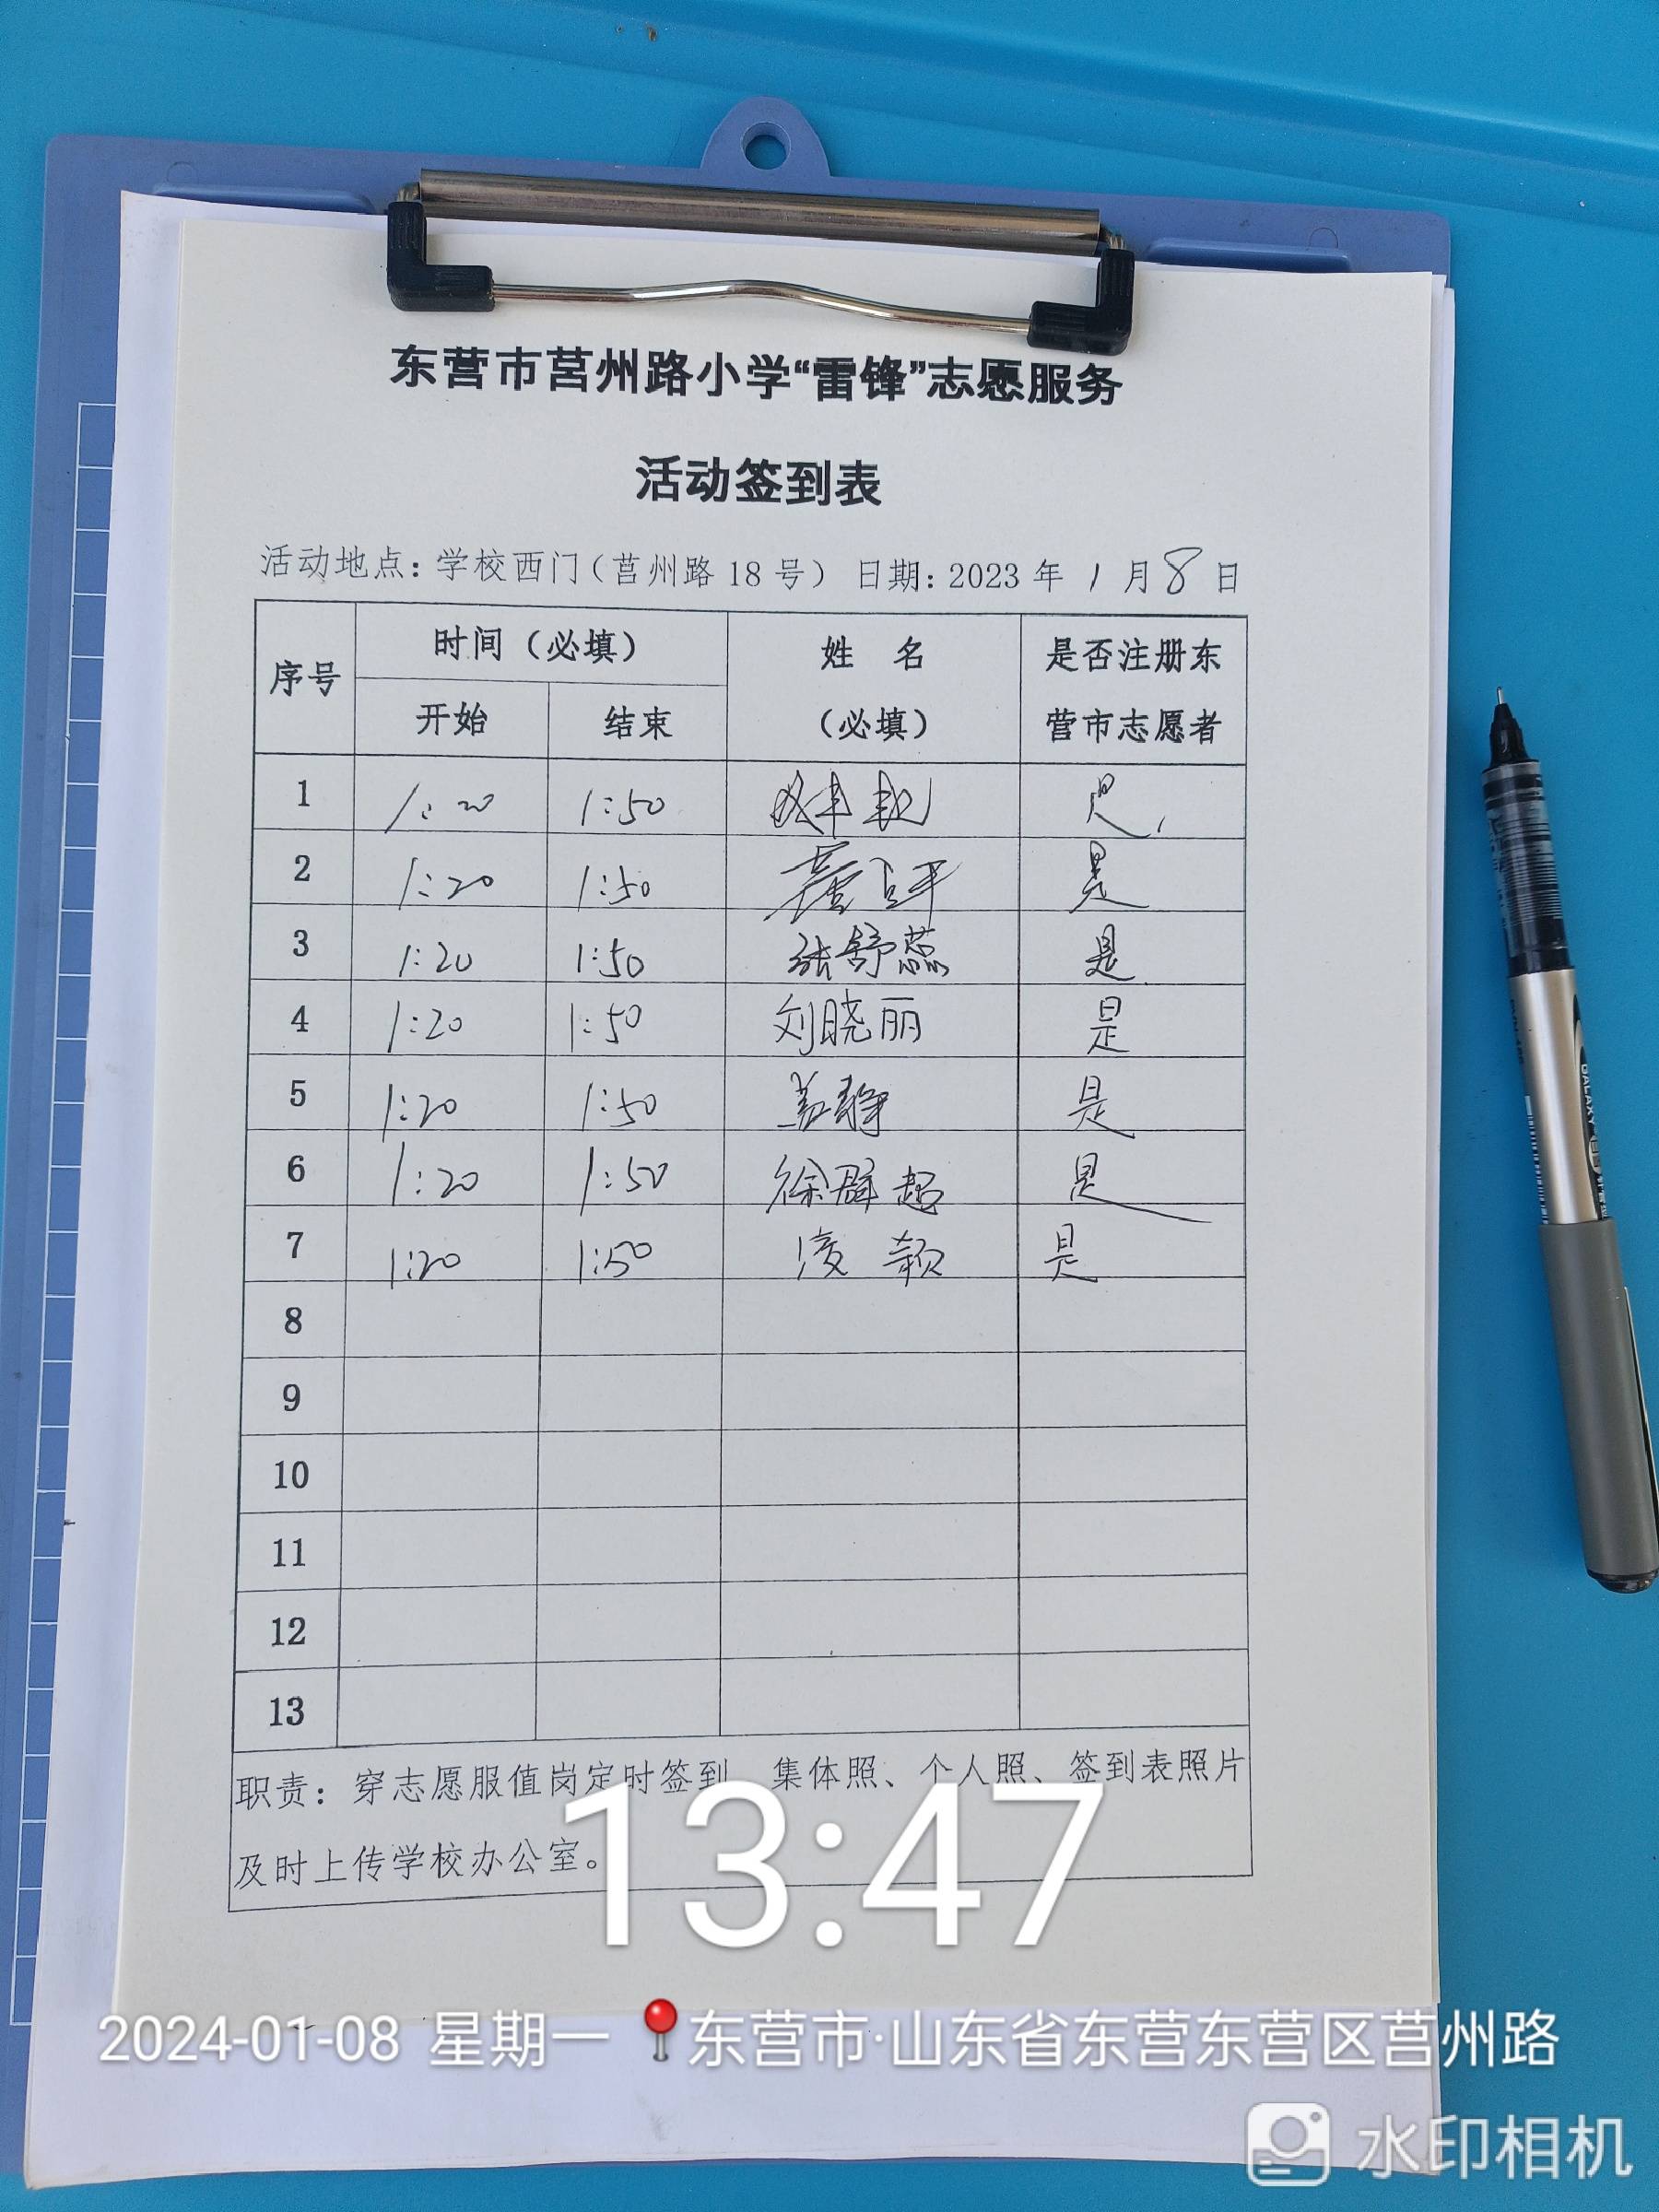 东营市莒州路小学“雷锋”志愿服务
活动签到表
活动地点：学校西门（莒州路 18 号） 日期：2023 年 1 月 8 日
序号 时间（必填） 姓 名（必填） 是否注册东营市志愿者
开始 结束
1 1:20 1:50 是
2 1:20 1:50 是
3 1:20 1:50 张舒蕊 是
4 1:20 1:50 刘晓丽 是
5 1:20 1:50 盖静 是
6 1:20 1:50 徐群超 是
7 1:20 1:50 是
8
9
10
11
12
13
职责：穿志愿服值岗定时签到、集体照、个人照、签到表照片
及时上传学校办公室。
13:47
2024-01-08 星期一 东营市·山东省东营东营区莒州路
水印相机